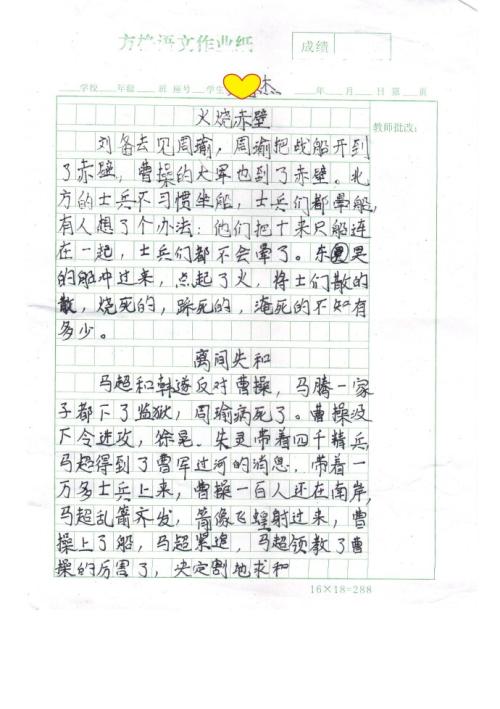 方格语文作业纸
成绩
学校 年级 班 座号 学生 杰 年 月 日 第 页
火烧赤壁
教师批改：
刘备去见周瑜，周瑜把战船开到
了赤壁，曹操的大军也到了赤壁。北
方的士兵不习惯坐船，士兵们都晕船，
有人想了个办法：他们把十来只船连
在一起，士兵们都不会晕了。东 吴
的船冲过来，点起了火，将士们散的
散，烧死的，跺死的，淹死的不知有
多少。
离间失和
马超和韩遂反对曹操，马腾一家
子都下了监狱，周瑜病死了。曹操没
下令进攻，徐晃、朱灵带着四千精兵，
马超得到了曹军过河的消息，带着一
万多士兵上来，曹操一百人还在南岸，
马超乱箭齐发，箭像飞蝗射过来，曹
操上了船，马超紧追，马超领教了曹
操的厉害了，决定割地求和
16×18=288